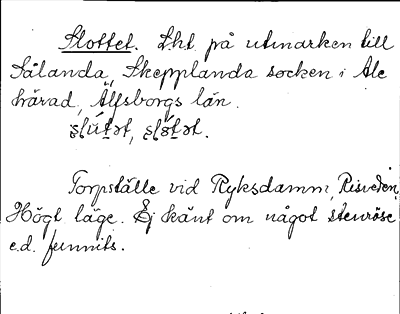 Slottet. Lht. på utmarken till
Sålanda, Skepplanda socken i Ale
härad, Älfsborgs län.
Torpställe vid Ryksdamm, Risveden.
Högt läge. Ej känt om något stenröse
e.d. funnits.